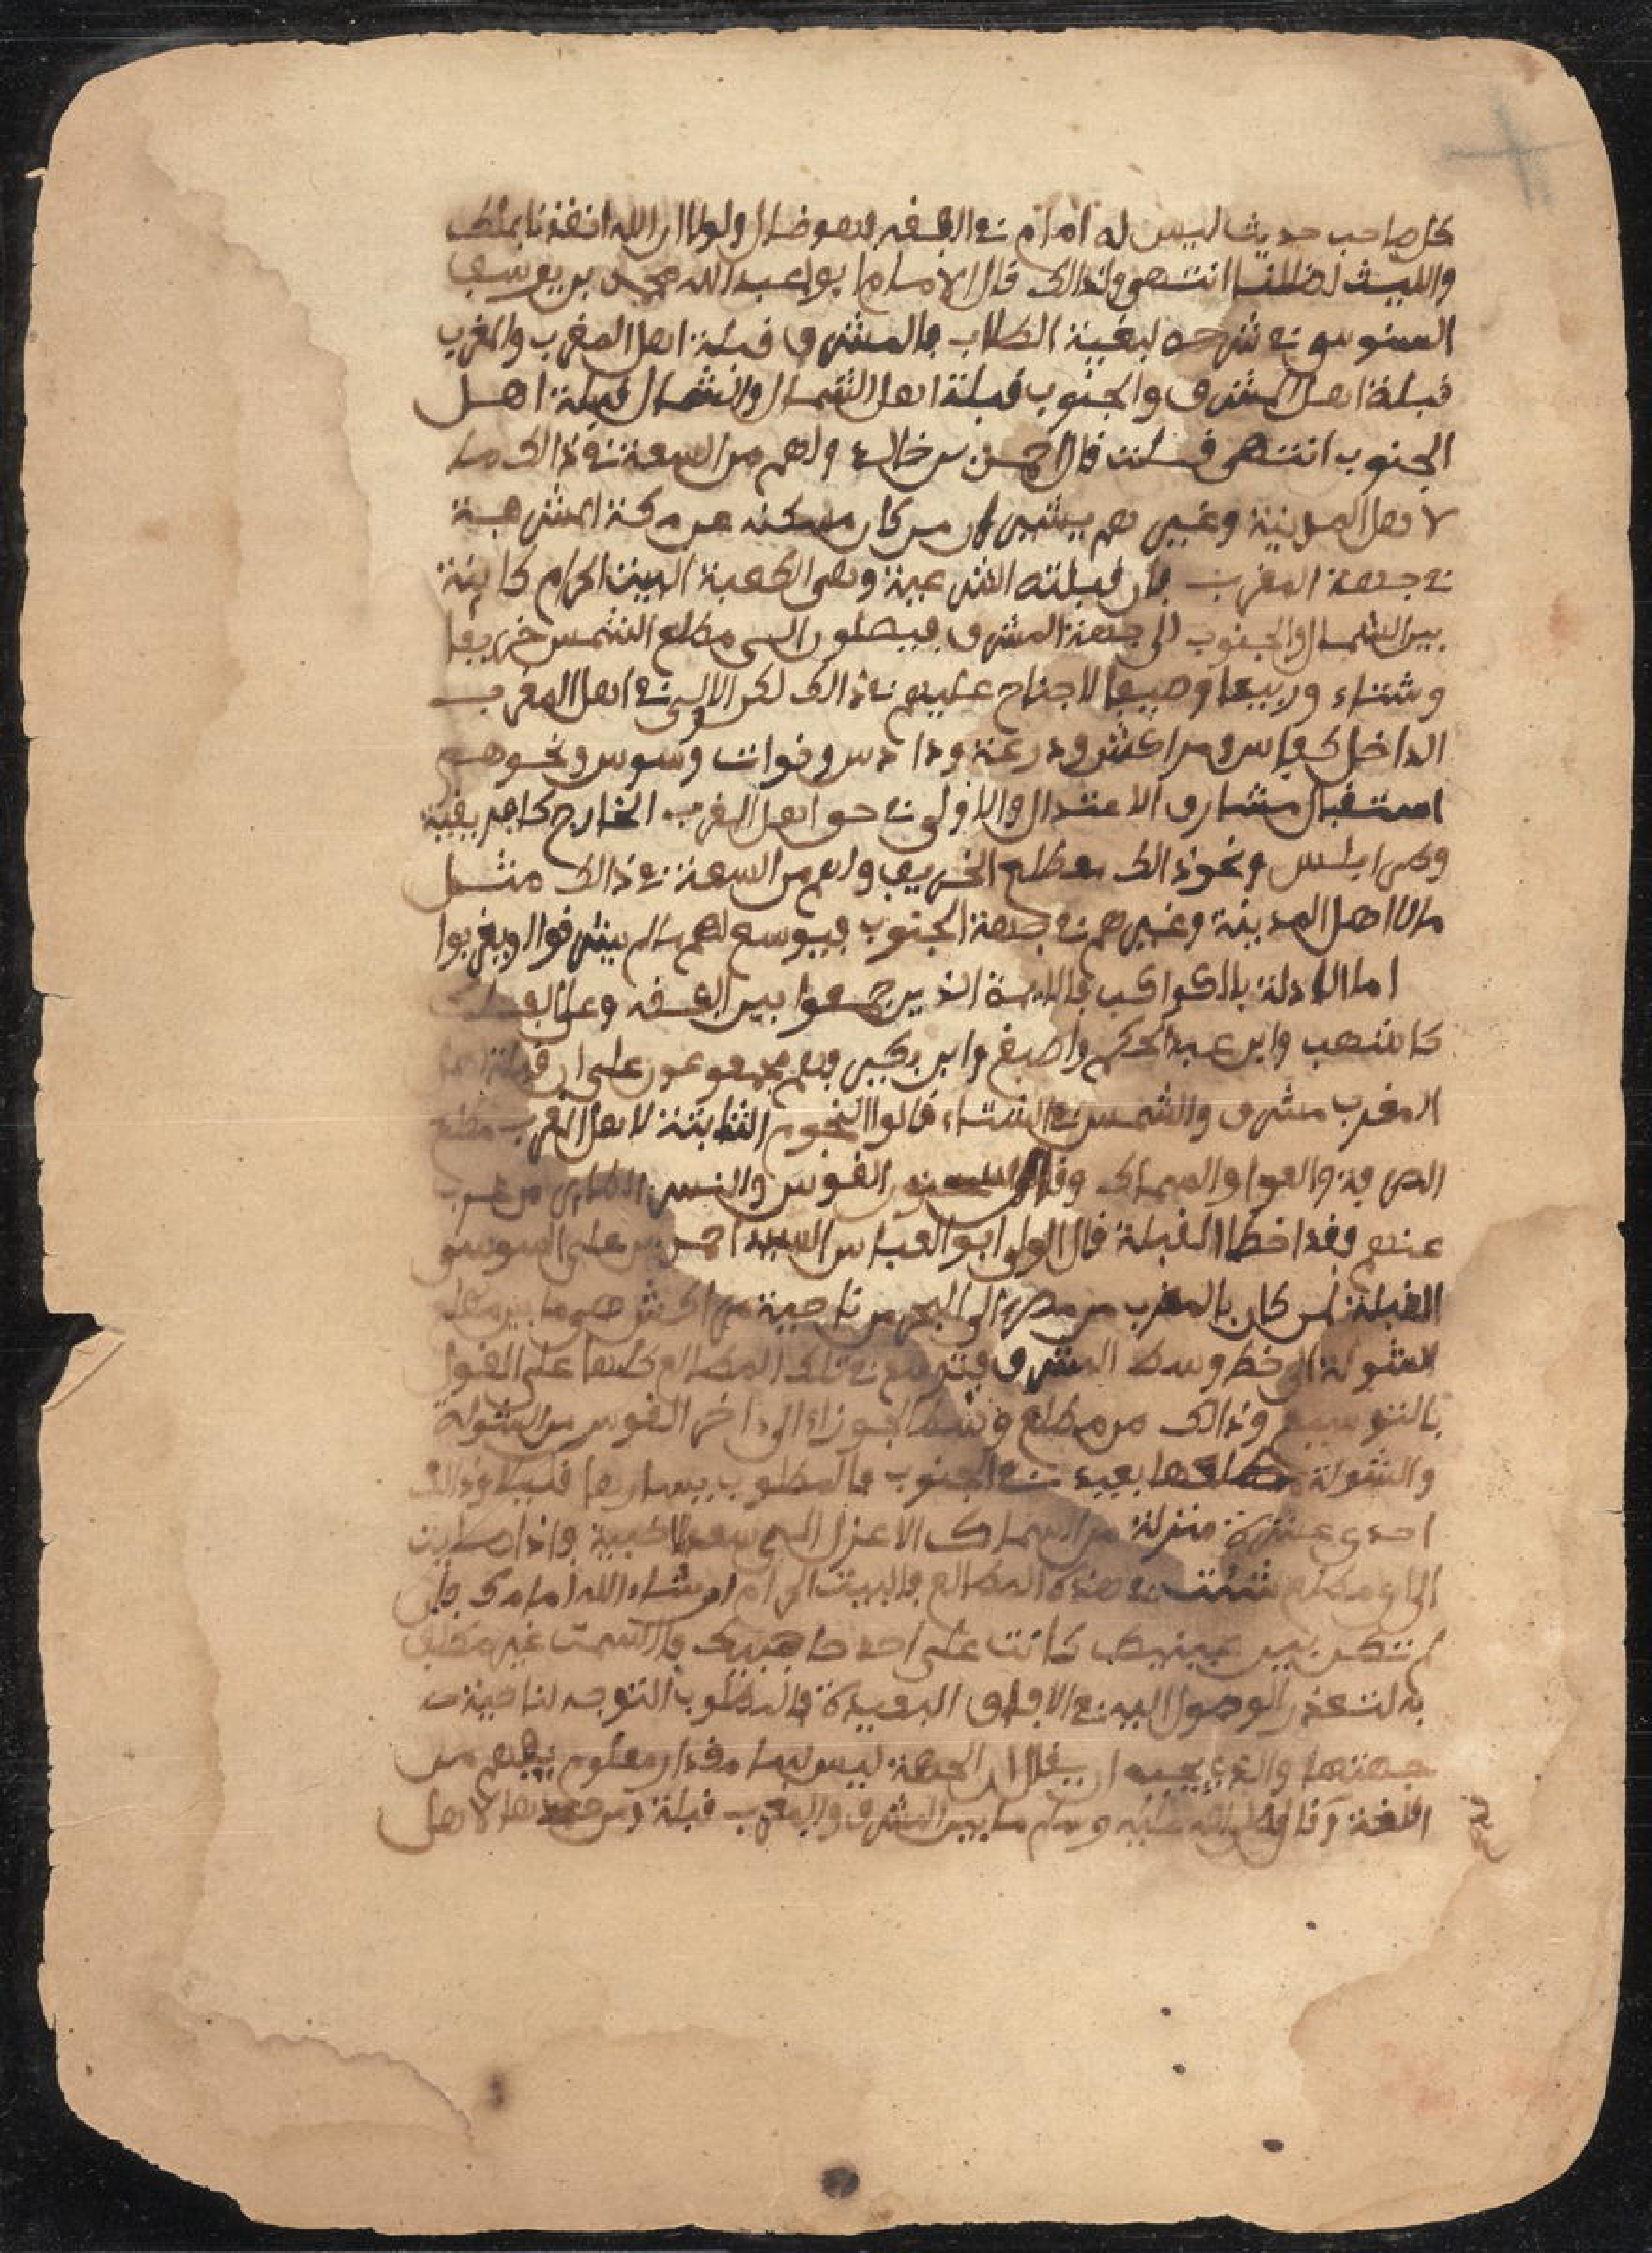 كل صاحب حديث ليس له امام في الفقه فهو ضال ولولا ان الله انقذنا بملك
والليث لضللنا انتهى ولذالك قال الامام ابو عبد الله محمد بن يوسف
السنوسي في شرحه لبغية الطلاب فالمشرق قبلة اهل المغرب والمغرب
قبلة اهل المشرق والجنوب قبلة اهل الشمال والشمال قبلة اهل
الجنوب انتهى قلت قال احمد بن خالد ولهم من السعة في ذالك ما
لاهل المدينة وغيرهم يشير ان من كان مسكنه عن مكة المشرفة
في جهة المغرب فان قبلته الشرعية وهي الكعبة البيت الحرام كاينة
بين الشمال والجنوب الى جهة المشرق فيصلون الى مطلع الشمس خريفا
وشتاء وربيعا وصيفا لا جناح عليهم في ذالك لكن الاولى في اهل المغرب
الداخل كفاس ومراكش ودرعة ودادس وتوات وسوس ونحوهم
استقبال مشارق الاعتدال والاولى في حق اهل المغرب الخارج كافريقية
وطرابلس ونحو ذالك مطلع الخريف ولهم من السعة في ذالك مثل
ما لاهل المدينة وغيرهم في جهة الجنوب فيوسع لهم ما لم يشرقوا او يغربوا
اما الادلة بالكواكب فالايمة الذين جمعوا بين الفقه وعلم الفلك
كاشهب وابن عبد الحكم واصبغ وابن بكير فهم مجمعون على ان قبلة اهل
المغرب مشرق الشمس في الشتاء قالوا النجوم الثابتة لاهل المغرب مطلع
الصرفة والعوا والسماك وقال سحنون القوس والنسر الطاير من غرب
عنهم فقد اخطا القبلة قال الولي ابو العباس السيد احمد بن علي السوسي
القبلة لمن كان بالمغرب من مصر الى البحر من ناحية مراكش هي ما بين مطلع
الشولة الى خط وسط المشرق فتتوسع في تلك المطالع كلها على القول
بالتوسيع وذالك من مطلع وسط الجوزاء الى اخر القوس من الشولة
والشولة مطلعها بعيد في الجنوب فالمطلوب يسارها قليلا وذالك
احدى عشرة منزلة من السماك الاعزل الى سعد الاخبية واذا صليت
الى اي مطلع شئت في هذه المطالع فالبيت الحرام ان شاء الله امامك فان
لم تكن بين عينيك كانت على احد حاجبيك فان السمت غير مطلوب
به لتعذر الوصول اليه في الافاق البعيدة فالمطلوب التوجه لناحية
جهتها والذي يجب ان يقال ان الجهة ليس لها مقدار معلوم يفهم من
اللغة وقال صلى الله عليه وسلم ما بين المشرق والمغرب قبلة لاهل